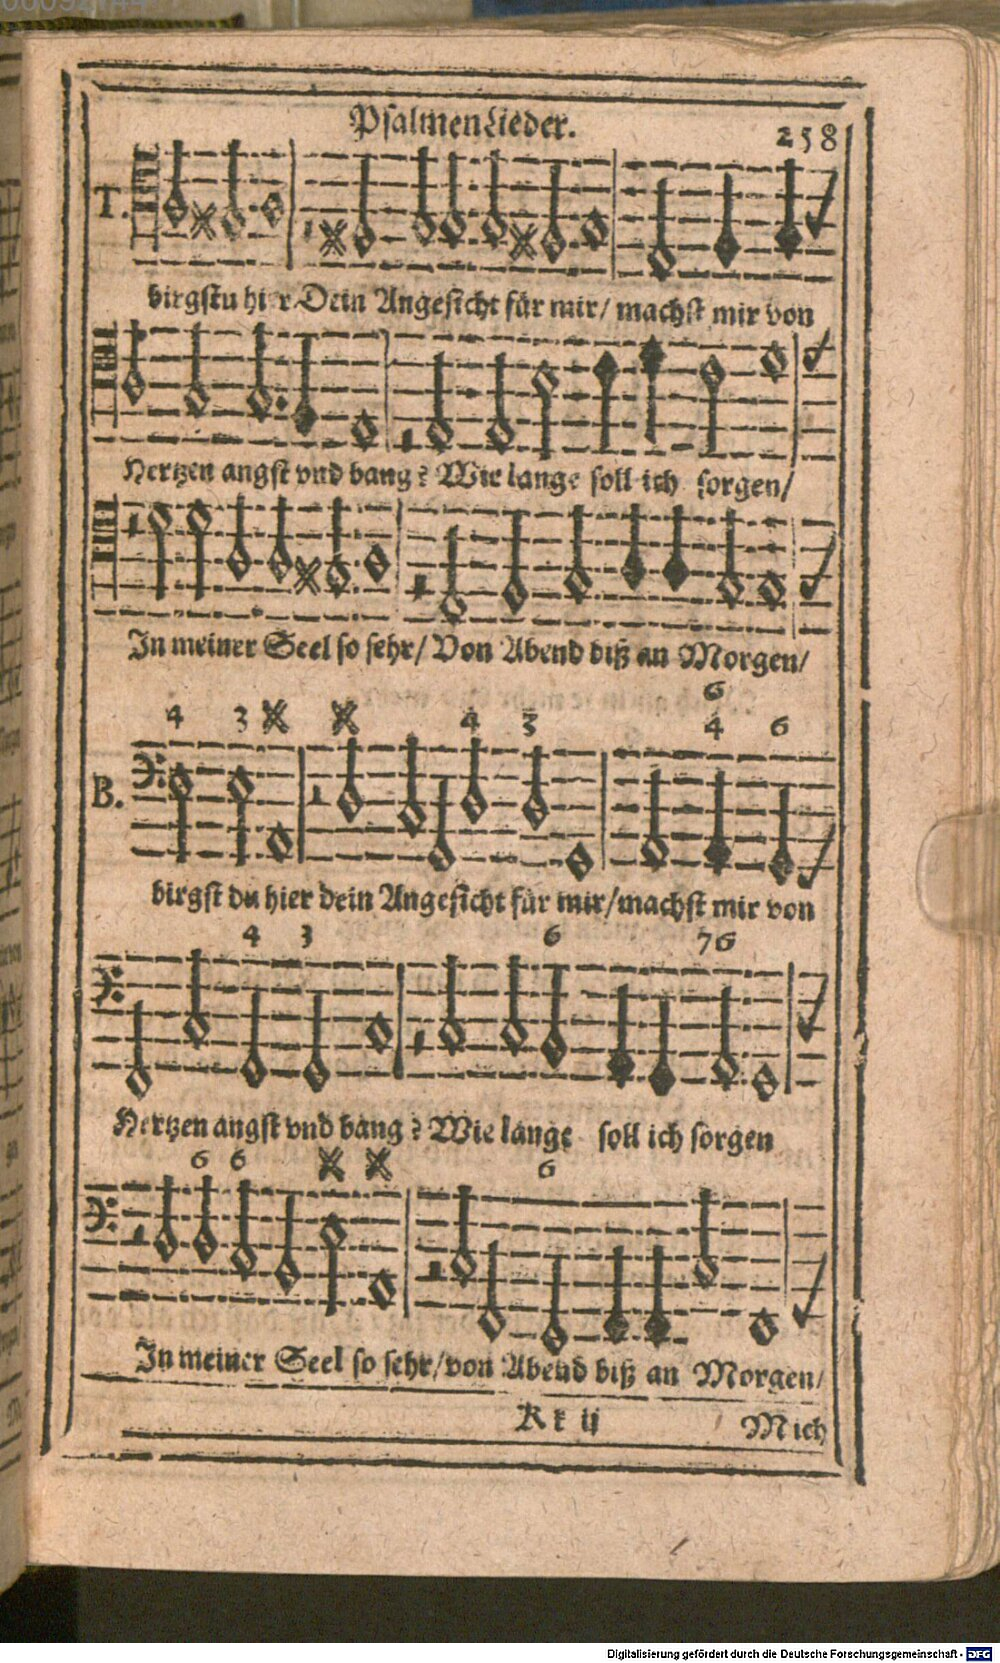 Psalmen Lieder.
258
T.
birgstu hier Dein Angesicht für mir/ machst mir von
Hertzen angst vnd bang? Wie lange soll ich sorgen/
In meiner Seel so sehr/ Von Abend biß an Morgen/
6
4 3 4 3 4 6
B.
birgst du hier dein Angesicht für mir/machst mir von
4 3 6 76
Hertzen angst vnd bang? Wie lange soll ich sorgen
6 6 6
In meiner Seel so sehr/von Abend biß an Morgen/
Kk ij
Mich
Digitalisierung gefördert durch die Deutsche Forschungsgemeinschaft - DFG